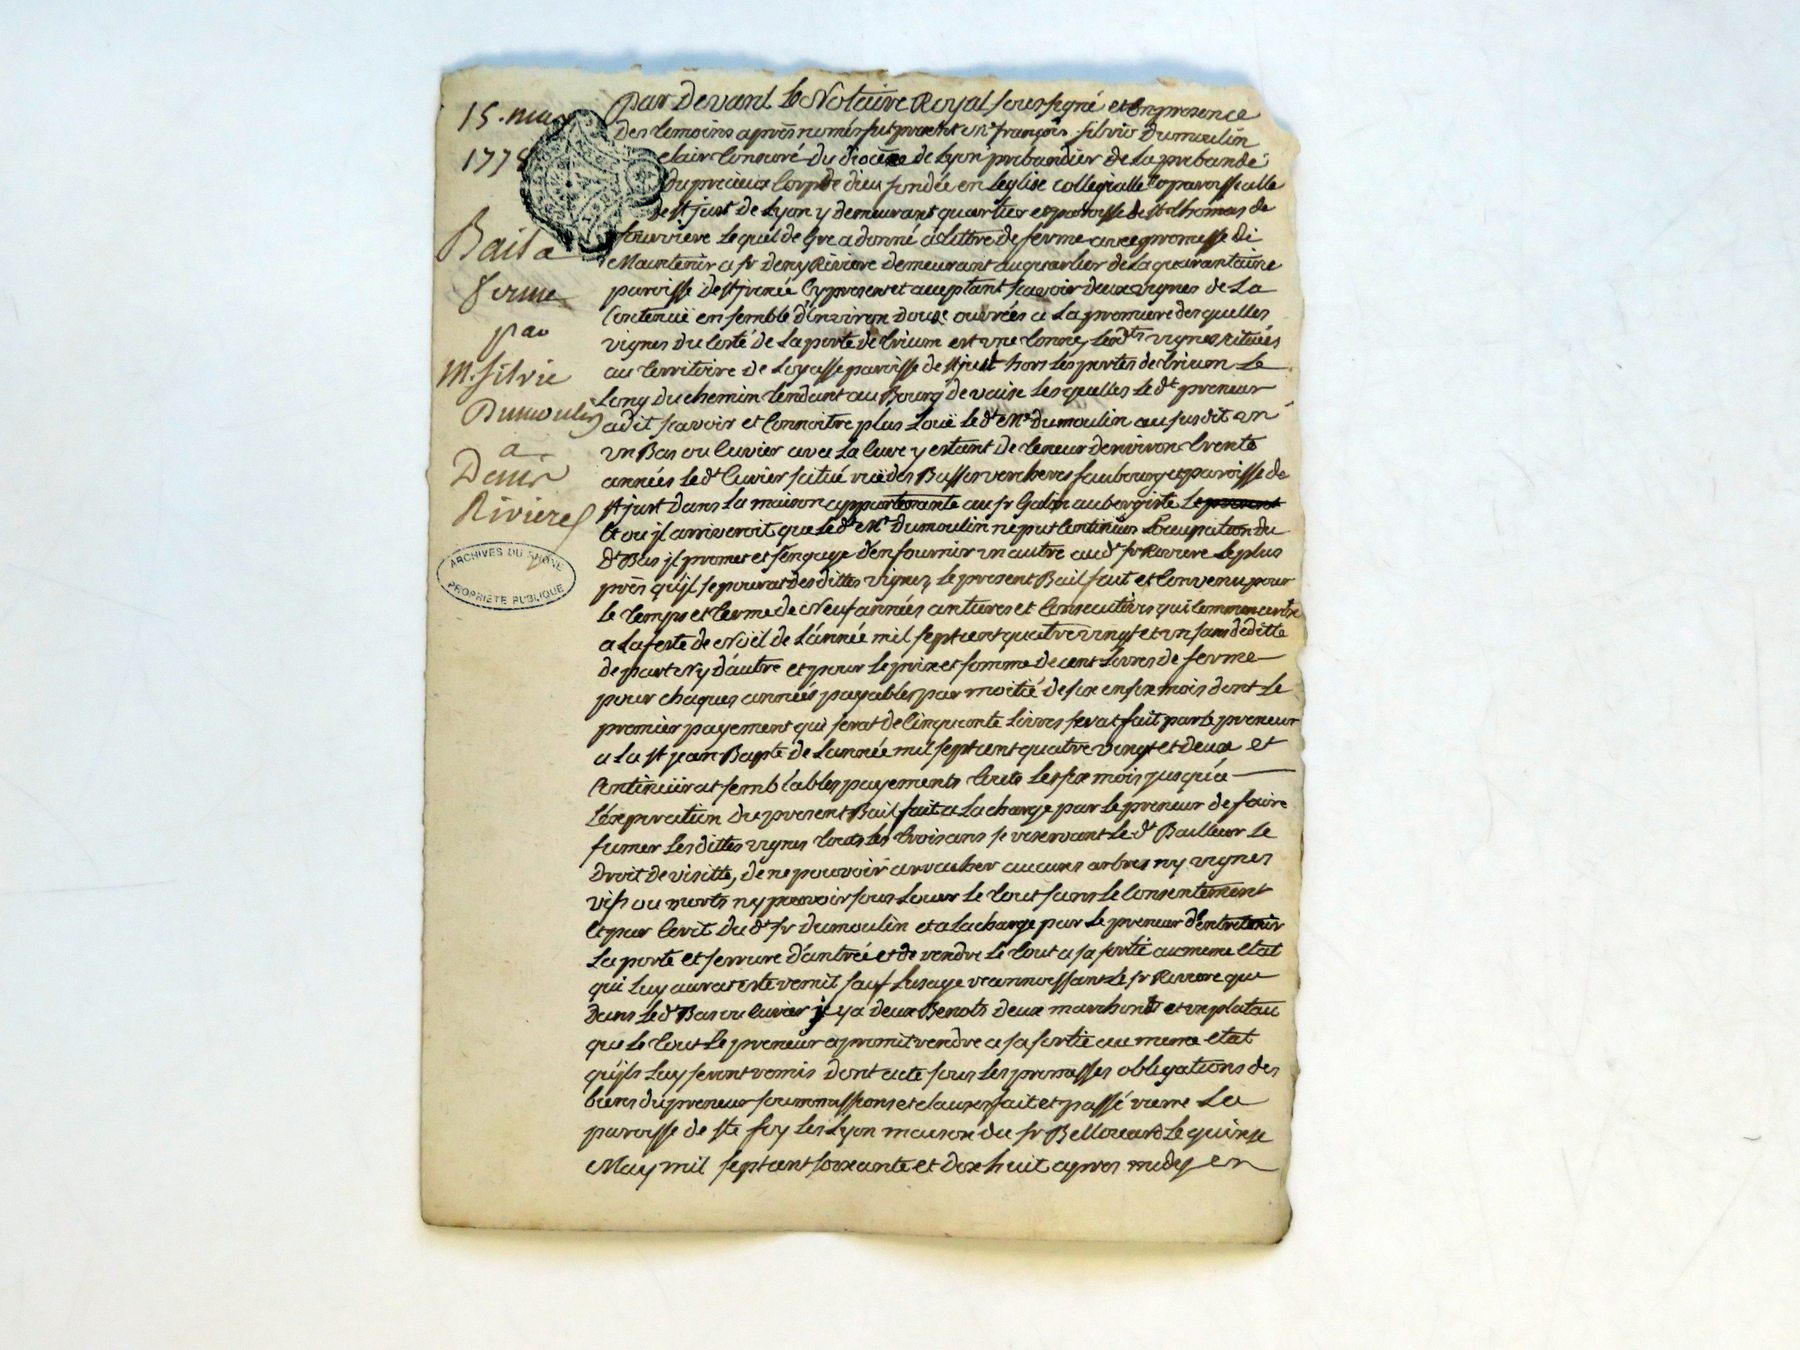 15. may
1778
Bail a
ferme
par
Mr. Silvie
Dumoulin
a
Denis
Riviere
ARCHIVES DU RHÔNE
PROPRIÉTÉ PUBLIQUE
par Devant le Notaire Royal soussigné et En presence
Des temoins aprés només fut present Mre françois silvie Dumoulin
clair tonsuré Du diocèze de Lyon prébandier de La prebande
Du precieux Corps de dieu fondée en Leglise collegialle et paroissialle
de st just de Lyon y demeurant quartier et paroisse de st thomas de
fourviere Lequel de gre a donné à tittre de ferme avec promesse de
Maintenir a sr Deny Riviere demeurant au quartier de La quarantaine
paroisse de st jrenée Cy present et acceptant scavoir deux vignes de La
Contenüe en semble d'environ douse ouvrées a La premiere des quelles
vignes du Costé de La porte de trium est une tonne, Lesdts vignes situées
au territoire de Loyasse paroisse de st just hors Les portes de trium Le
Long Du chemin tendant au Bourg de vaise Les quelles Le dt preneur
a dit scavoir et Connoitre plus Loüe Le dt Mre Dumoulin au susdit un
un Bas ou Cuvier avec La Cuve y estant de teneur denviron trente
années Le dt Cuvier situé rüe des Basses vercheres faubourg et paroisse de
st just Dans La maison appartenante au sr Galin aubergiste Le present
Et ou jl arriveroit que Le dt Mr Dumoulin ne put Continuer L'ocupation du
dt Bas jl promet et s'engage d'en fournir un autre au dt sr Riviere Le plus
prés qu'jl se pourat des dittes vignes, Le present Bail fait et Convenu pour
Le temps et terme de Neuf années antieres et Consecutives qui Commencerons
a La feste de Noël de L'année mil sept cent quatre vingt et un sans deditte
de part Ny d'autre et pour Le prix et somme de cent Livres de ferme
pour chaques années payables par moitié de six en six mois dont Le
premier payement qui serat de Cinquante Livres serat fait par Le preneur
a La st jean Bapte de L'année mil sept cent quatre vingt et deux et
Continüerat semblables payements touts Les six mois jusqu'à
L'éxpiration Du present Bail fait a La charge par Le preneur de faire
fumer Les dittes vignes touts Les trois ans se reservant Le dt Bailleur Le
Droit De visitte, de ne pouvoir arracher aucuns arbres ny vignes
vifs ou morts ny pouvoir sous Louer Le tout sans Le Consentement
Et par Ecrit Du dt sr Dumoulin et a La charge par Le preneur d'Entretenir
La porte et serrure d'antrée et de rendre Le tout a sa sortie au meme Etat
qui Luy aurat esté remit sauf Lusage reconnoissant Le sr Riviere que
Dans Le dt Bas ou Cuvier jl y a deux Benots deux marchons et un plateau
que Le tout Le preneur a promit rendre a sa sortie au meme Etat
qu'jls Luy seront remis dont acte sous Les promesses obligations des
biens du preneur soummissions et clauses fait et passé rierre La
paroisse de ste foy Les Lyon maison du sr Bellouard Le quinze
May mil sept cent soixante et dix huit apres midy en